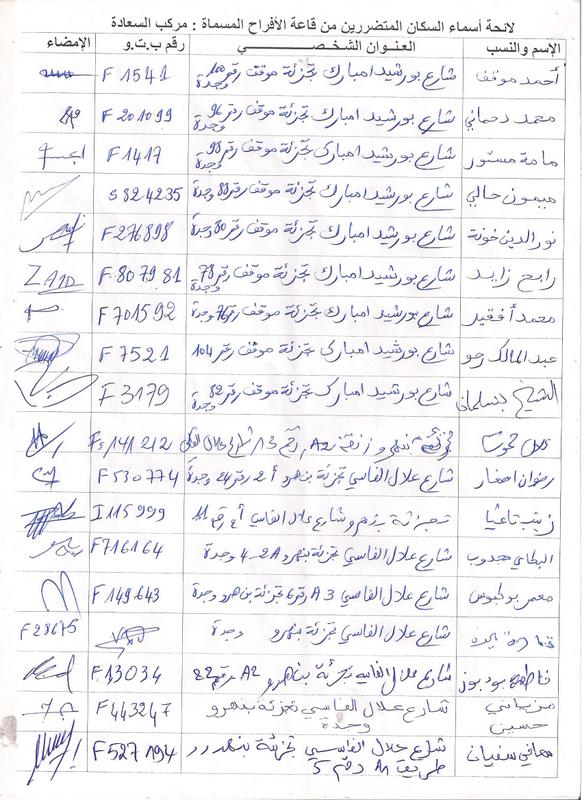 لائحة أسماء السكان المتضررين من قاعة الأفراح المسماة : مركب السعادة
الإسم والنسب العنوان الشخصي رقم ب.ت.و الإمضاء
أحمد موقف شارع بورشيد امبارك تجزئة موقف رقم وجدة F 1541
محمد دحماني شارع بورشيد امبارك تجزئة موقف رقم 96 وجدة F 201099
مامة مستور شارع بورشيد امبارك تجزئة موقف رقم 98 وجدة F 1417
ميمون حالي شارع بورشيد امبارك تجزئة موقف رقم وجدة S 824235
نور الدين خونة شارع بورشيد امبارك تجزئة موقف رقم 80 وجدة F 276898
رابح زايد شارع بورشيد امبارك تجزئة موقف رقم 78 وجدة F 807981 ZAID
محمد أفقير شارع بورشيد امبارك تجزئة موقف رقم 76 وجدة F 701592
عبد المالك رحو شارع بورشيد امبارك تجزئة موقف رقم 104 F 7521
الشيخ بنسلماني شارع بورشيد امبارك تجزئة موقف رقم 82 وجدة F 3179
زنقة A2 رقم 13 141212
رضوان اصغار شارع علال الفاسي تجزئة بنهرو أ2 رقم 24 وجدة F 530774
زينب شارع علال الفاسي رقم 11 I 115999
البطاي مجدوب شارع علال الفاسي تجزئة بنهرو A2 - 4 وجدة F 716164
معمر بوكبوس شارع علال الفاسي A 3 رقم 6 تجزئة بنهرو وجدة F 149643
شارع علال الفاسي تجزئة بنهرو وجدة F 28675
فاطمة بودبوز شارع علال الفاسي تجزئة بنهرو A2 رقم 22 F 13034
مزياني حسين شارع علال الفاسي تجزئة بنهرو وجدة F 443247
معافي سفيان شارع علال الفاسي تجزئة
طريق A1 رقم 5 F 527194